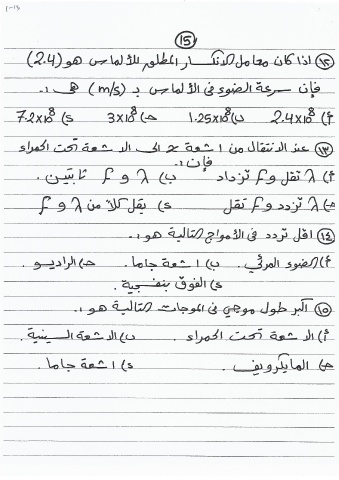 ١-١٥
١٥
١٢) اذا كان معامل الانكسار المطلق للألماس هو (2.4)
فإن سرعة الضوء في الألماس بـ (m/s) هي :.
أ) 2.4x10⁸ ب) 1.25x10⁸ حـ) 3x10⁸ د) 7.2x10⁸
١٣) عند الانتقال من اشعة ح الى الاشعة تحت الحمراء
فإن :.
أ) λ تقل و f تزداد ب) λ و f ثابتين .
حـ) λ تزدد و f تقل د) يقل كلاً من λ و f
١٤) اقل تردد في الأمواج التالية هو :.
أ) الضوء المرئي . ب) اشعة جاما . حـ) الراديو .
د) الفوق بنفسجية .
١٥) اكبر طول موجي في الموجات التالية هو :.
أ) الاشعة تحت الحمراء . ب) الاشعة السينية .
حـ) المايكرويف . د) اشعة جاما .